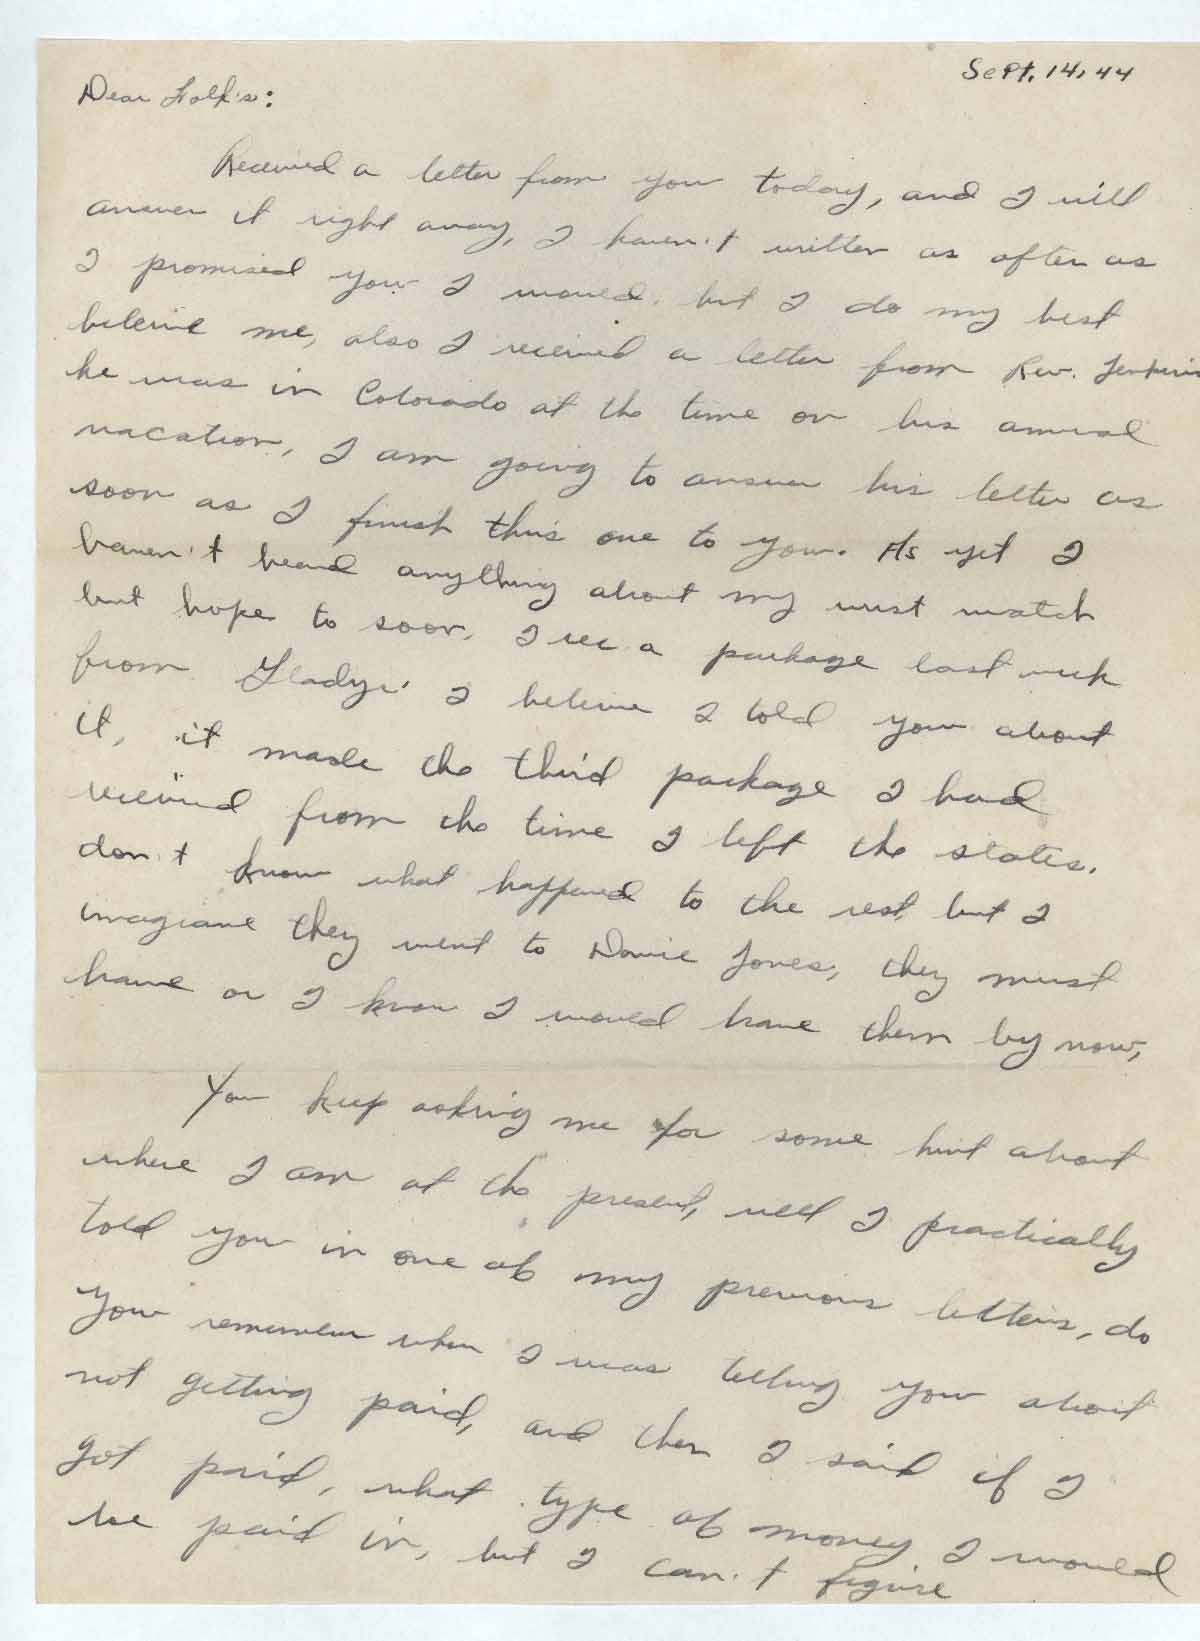 Sept. 14, 44
Dear Folk's:
Received a letter from you today, and I will
answer it right away, I haven't written as often as
I promised you I would, but I do my best
beleive me, also I received a letter from Rev. Jenkins
he was in Colorado at the time on his annual
vacation, I am going to answer his letter as
soon as I finish this one to you. As yet I
haven't heard anything about my wrist watch
but hope to soon. I rec a package last week
from Gladys' I believe I told you about
it, it made the third package I had
received from the time I left the states.
don't know what happened to the rest, but I
imagiane they went to Davie Jones, they must
have or I know I would have them by now,
You keep asking me for some hint about
where I am at the present, well I practically
told you in one of my previous letters, do
you remember when I was telling you about
not getting paid, and then I said if I
got paid, what type of money I would
be paid in, but I can't figure